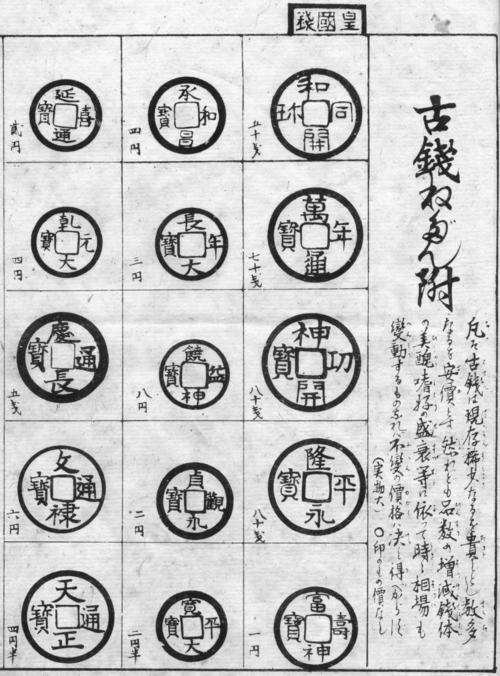 皇國錢
古錢ねだん附
凡そ古錢は現存稀少なるを貴しとし数多
なるを安價とす然れども品数の増減錢体
の美醜嗜好の盛衰等に依つて時に相場も
變動するものなれば不變の價格は決し得べからず
(実物大 〇印のもの價なし
和同開珎
五十戋
萬年通寶
七十戋
神功開寶
八十戋
隆平永寶
八十戋
富壽神寶
一円
承和昌寶
四円
長年大寶
三円
饒益神寶
八円
貞觀永寶
二円
寛平大寶
二円半
延喜通寶
貳円
乾元大寶
四円
慶長通寶
五戋
文禄通寶
六円
天正通寶
四円半